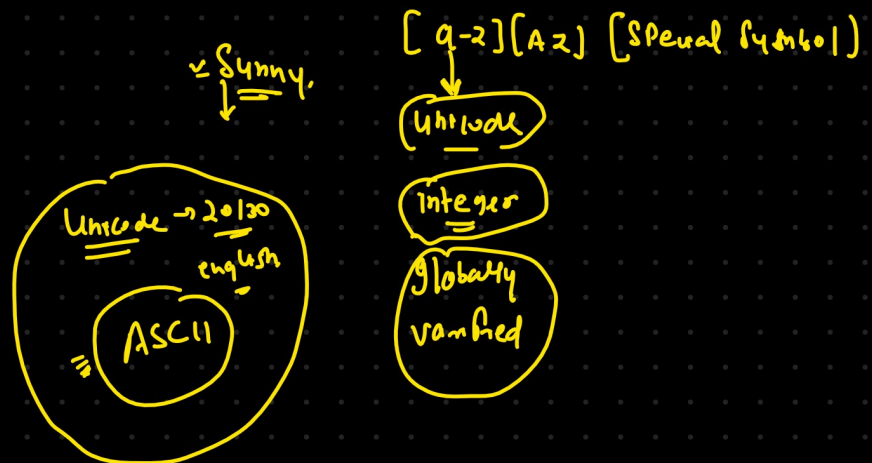 [a-z] [A z] [Special Symbol]
Sunny,
Unicode
integer
globally
Unicode → 20130
english
ASCII